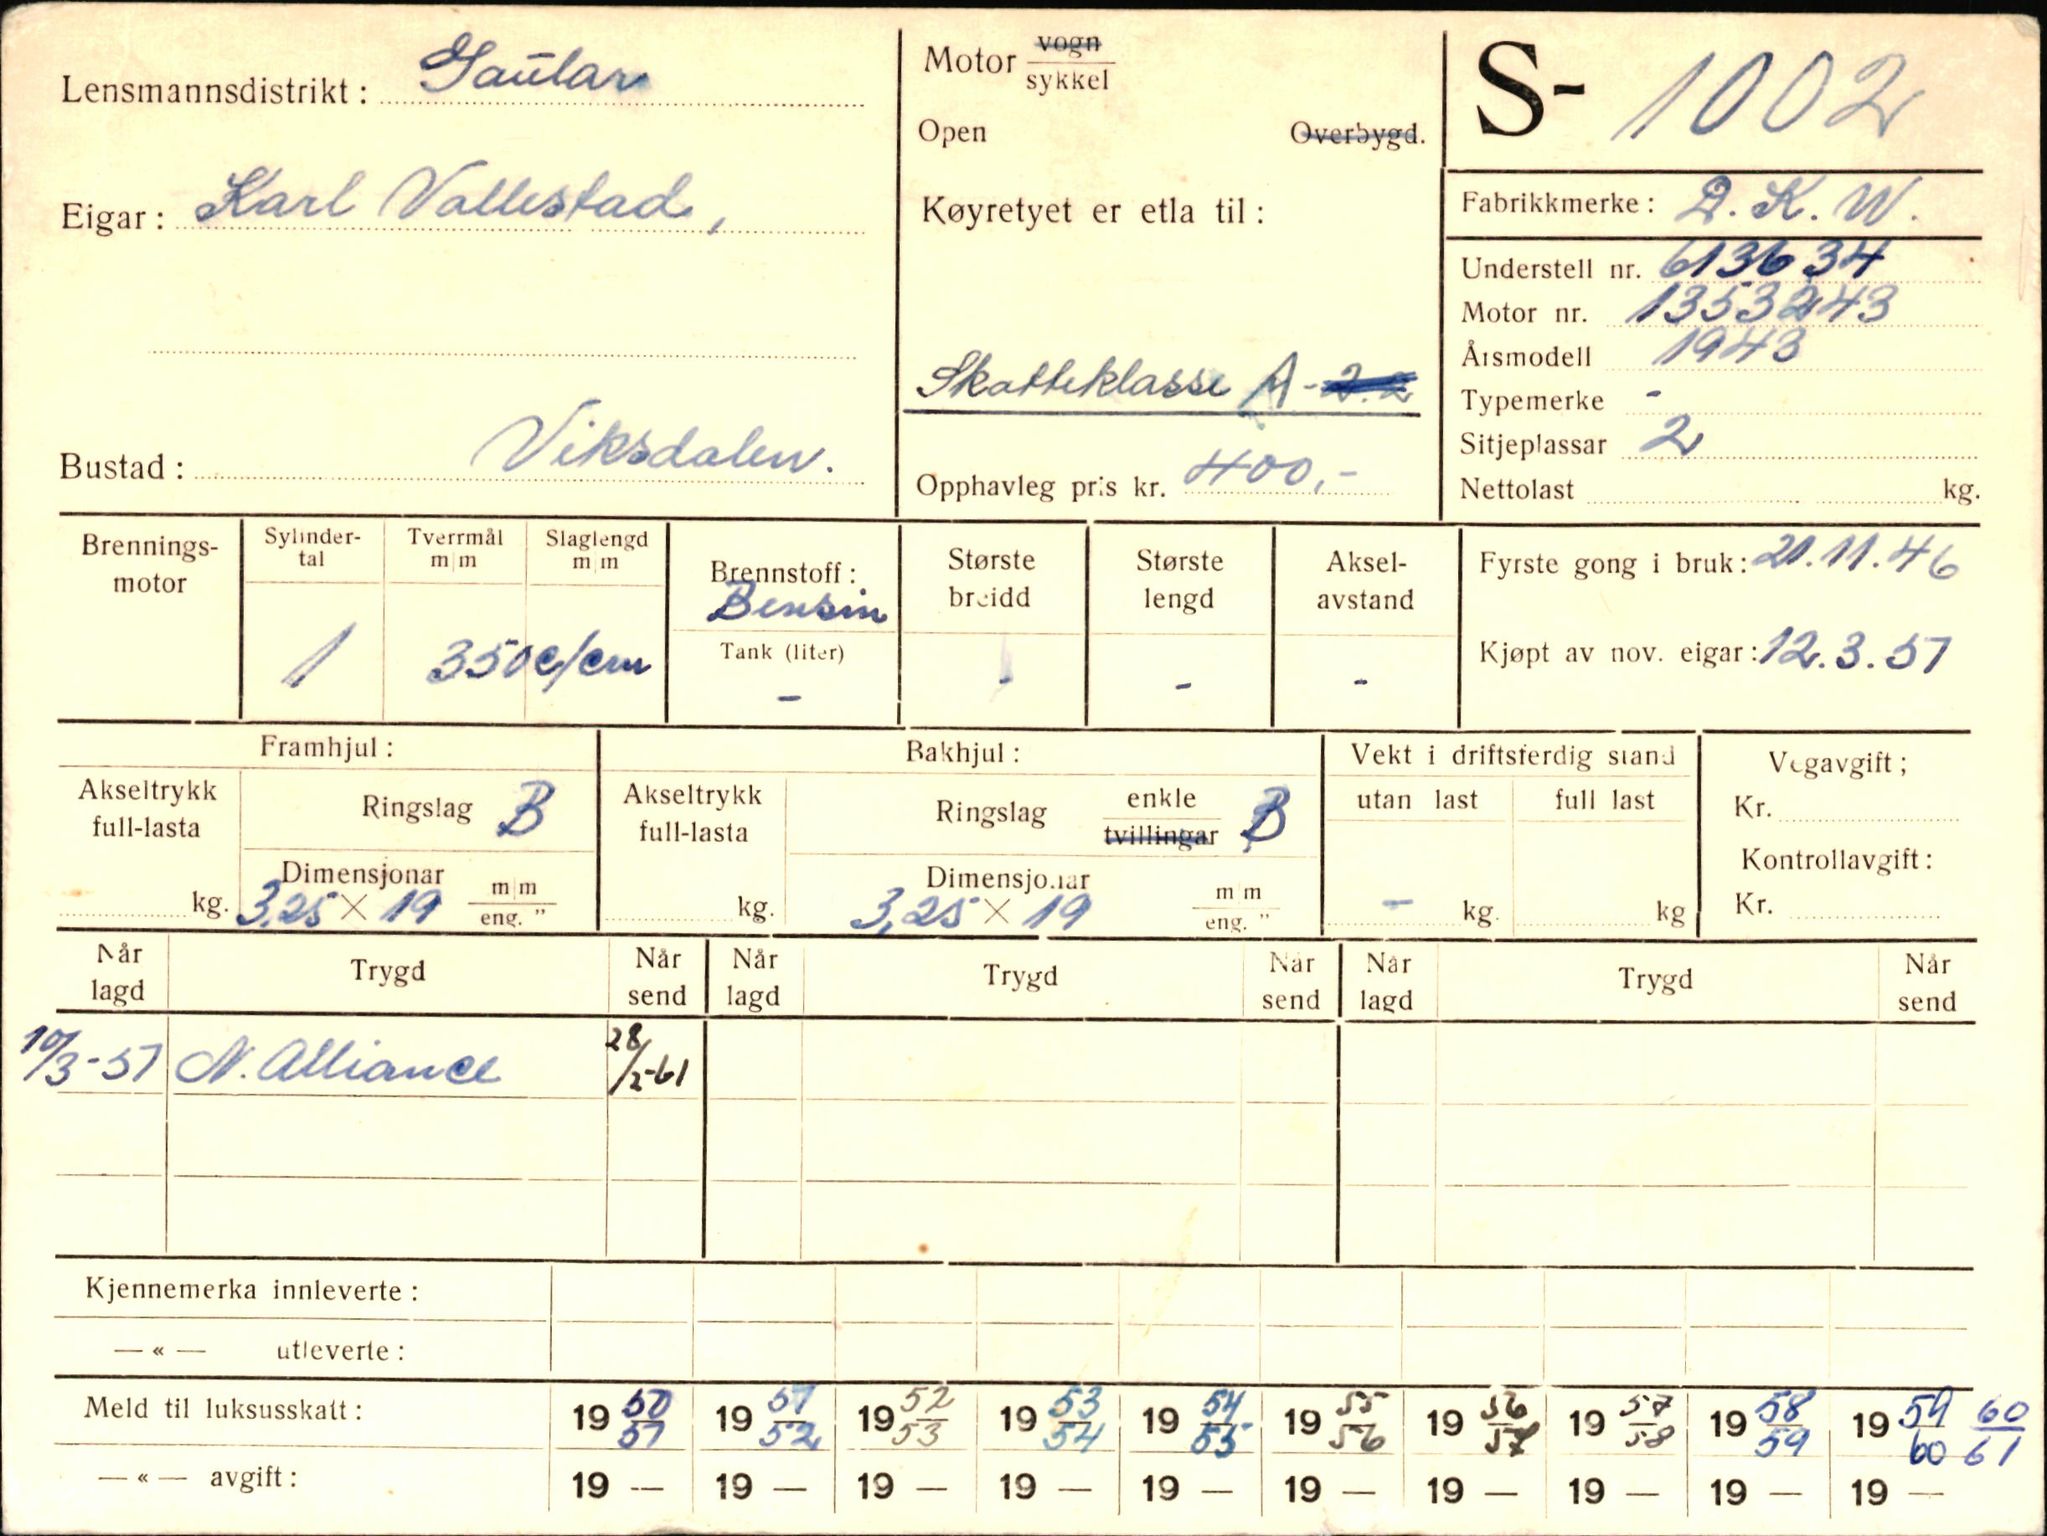 Lensmannsdistrikt: Gaular
Eigar: Karl Vallestad,
Bustad: Viksdalen.
Motor vogn
sykkel
Open Overbygd.
Køyretyet er etla til:
Skatteklasse A-2.2
Opphavleg pris kr. 400,-
S- 1002
Fabrikkmerke: D.K.W.
Understell nr. 613634
Motor nr. 1353243
Årsmodell 1943
Typemerke -
Sitjeplassar 2
Nettolast kg.
Brennings-
motor
Sylinder-
tal
1
Tverrmål
m|m
Slaglengd
m|m
350 c/cm
Brennstoff:
Bensin
Tank (liter)
-
Største
breidd
-
Største
lengd
-
Aksel-
avstand
-
Fyrste gong i bruk: 21.11.46
Kjøpt av nov. eigar: 12.3.51
Framhjul:
Akseltrykk
full-lasta
kg.
Ringslag B
Dimensjonar
3,25 × 19
m|m
eng. "
Bakhjul:
Akseltrykk
full-lasta
kg.
Ringslag enkle
tvillingar B
Dimensjonar
3,25 × 19
m|m
eng. "
Vekt i driftsferdig stand
utan last full last
- kg. kg
Vegavgift;
Kr.
Kontrollavgift:
Kr.
Når
lagd
Trygd
Når
send
Når
lagd
Trygd
Når
send
Når
lagd
Trygd
Når
send
10/3-51 N. Alliance 28/2-61
Kjennemerka innleverte:
— « — utleverte:
Meld til luksusskatt: 19 50/51 19 51/52 19 52/53 19 53/54 19 54/55 19 55/56 19 56/57 19 57/58 19 58/59 19 59/60 60/61
— « — avgift: 19 — 19 — 19 — 19 — 19 — 19 — 19 — 19 — 19 — 19 —